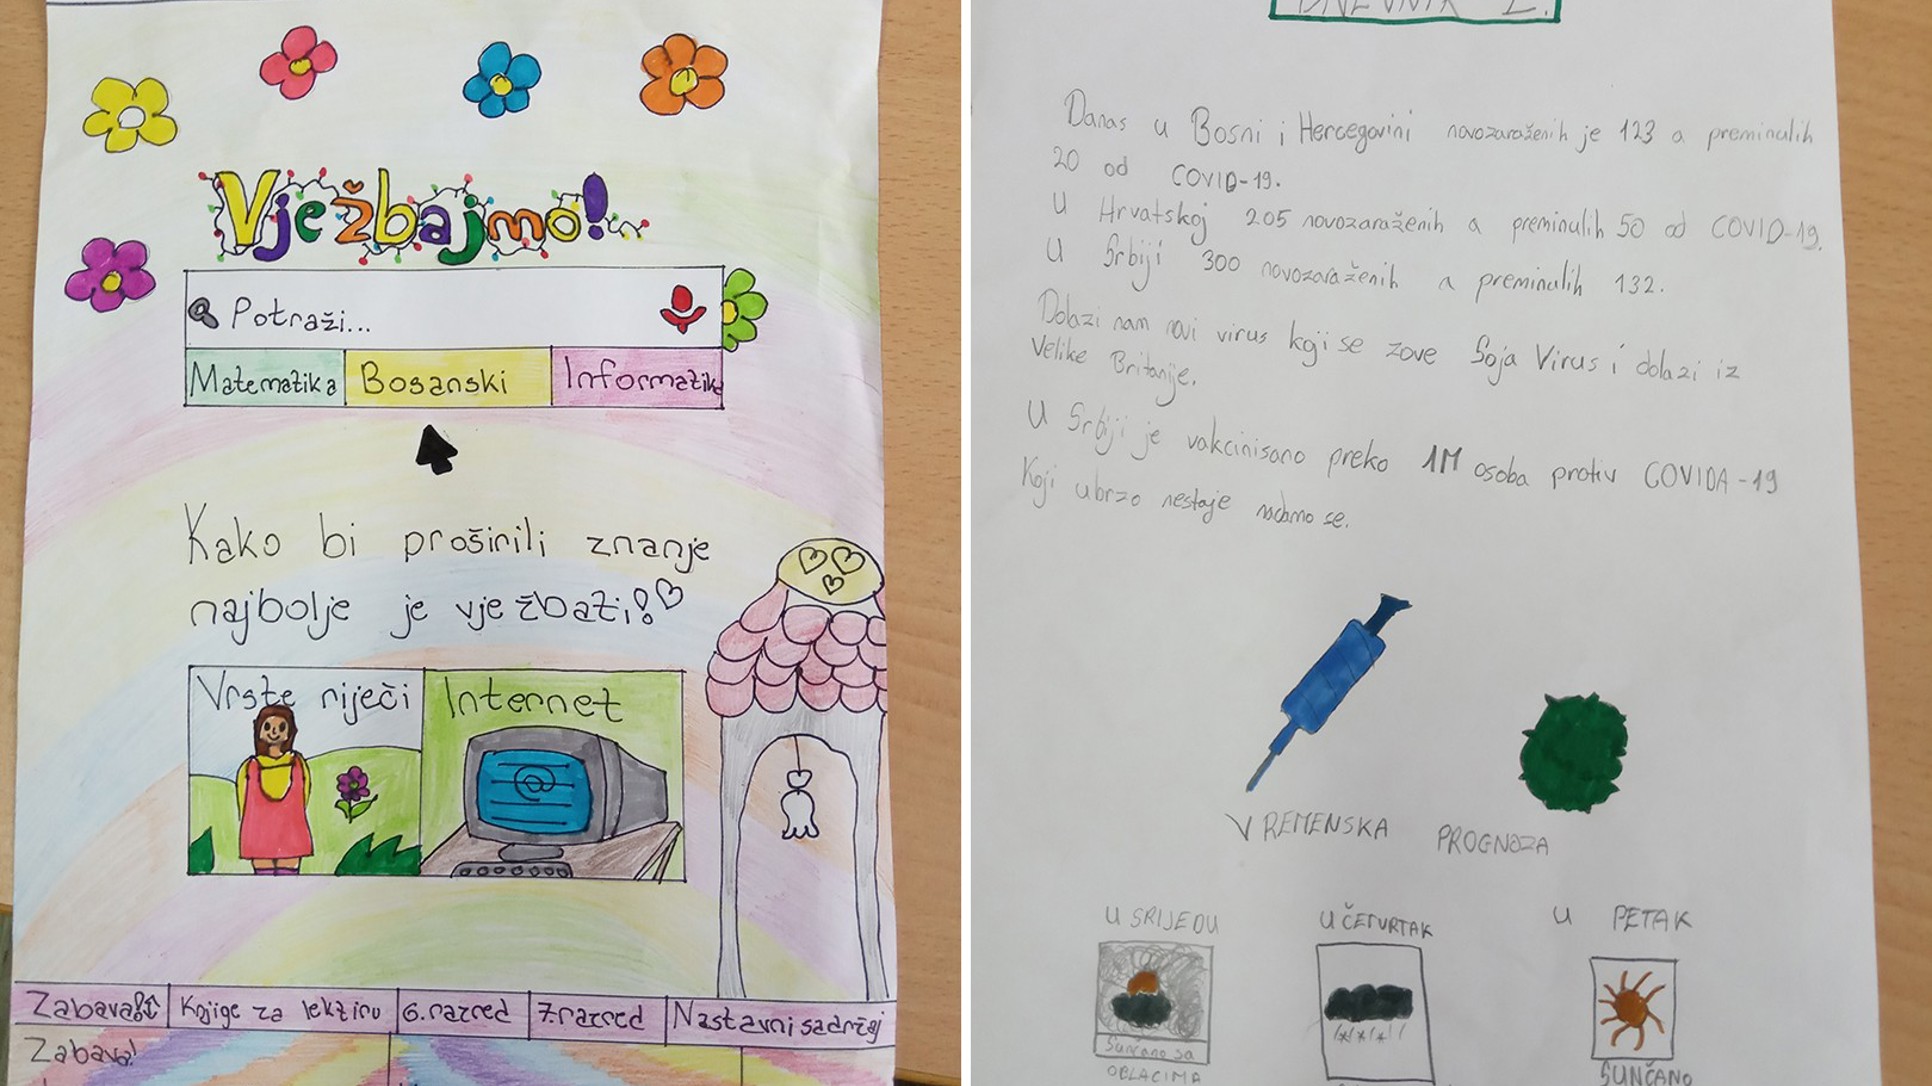 Vježbajmo!
Potraži...
Matematika Bosanski Informatika
Kako bi proširili znanje
najbolje je vježbati!
Vrste riječi Internet
Zabava! Knjige za lektiru 6. razred 7. razred Nastavni sadržaj
Zabava!
DNEVNIK 2.
Danas u Bosni i Hercegovini novozaraženih je 123 a preminulih
20 od COVID-19.
U Hrvatskoj 205 novozaraženih a preminulih 50 od COVID-19.
U Srbiji 300 novozaraženih a preminulih 132.
Dolazi nam novi virus koji se zove Soja Virus i dolazi iz
Velike Britanije.
U Srbiji je vakcinisano preko 1M osoba protiv COVIDA-19
Koji ubrzo nestaje nadamo se.
VREMENSKA PROGNOZA
U SRIJEDU U ČETVRTAK U PETAK
Sunčano sa
OBLACIMA SUNČANO